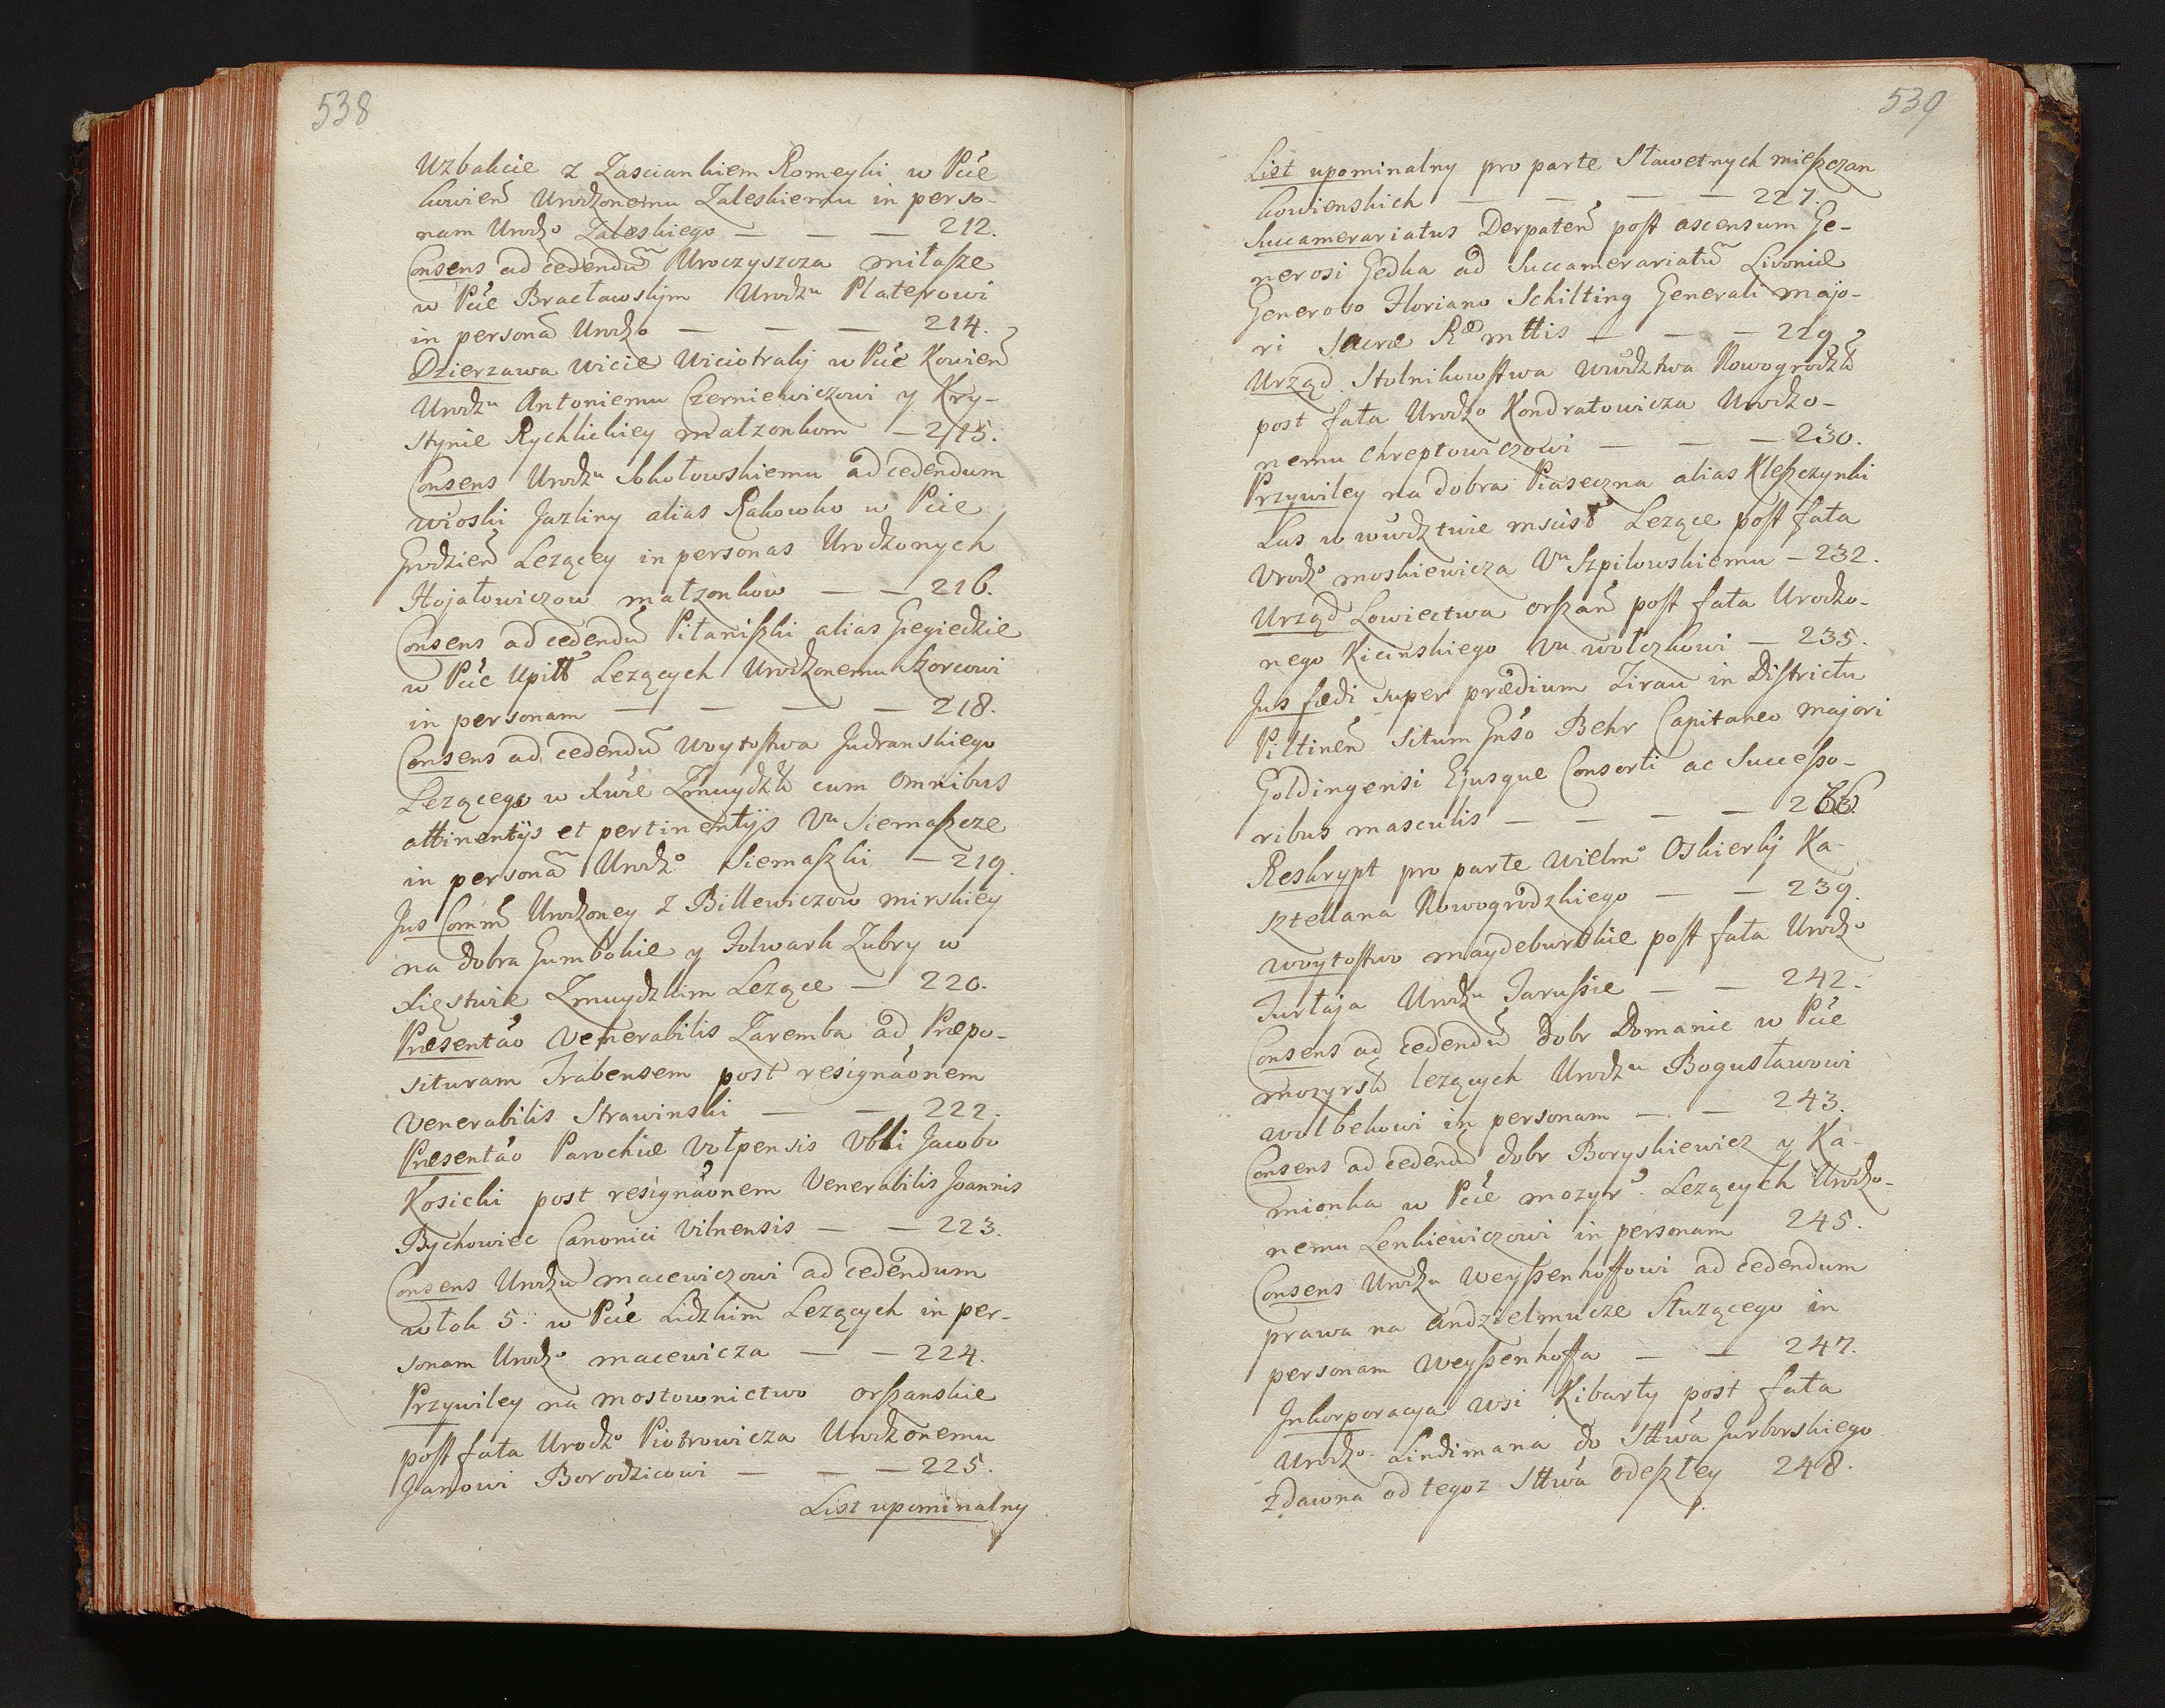 538
Uzbalcie z Zasciankiem Romeyki w Pcie
kowień Urodzonemu Zaleskiemu in perso-
nam Urodzo Zaleskiego — — — 212.
Consens ad cedendū Uroczyszcza milasze
w Pcie Bracławskim Urodzu Platerowi
in personā Urodzo — — — 214.
Dzierzawa wicie Uiciotraky w Pcie Kowień
Urodzu Antoniemu Czerniewiczowi y Kry-
stynie Rychlickiey małzonkom — 215.
Consens Urodzu Sokołowskiemu ad cedendum
wioski Jazliny alias Rakowko w Pcie
Grodzień Lezącey in personas Urodzonych
Hojałowiczow małzonkow — — 216.
Consens ad cedendū Pitaniszki alias Giegiedzie
w Pcie Upitt Lezących Urodzonemu Szorcowi
in personam — — — — 218.
Consens ad cedendū Woytostwa Judranskiego
Lezącego w Xwie Zmuydzk cum omnibus
attinentijs et pertinentijs Vu Siemaszcze
in personā Urodzo Siemaszki — 219.
Jus Comm Urodzoney z Billewiczow mirskiey
na dobra Gumbokie y Folwark Zubry w
Xięstwie Zmuydzkim Lezące — 220.
Præsentao Venerabilis Zaremba ad Præpo-
situram Trabensem post resignaonem
Venerabilis Strawinski — — 222.
Præsentao Parochiæ Volpensis Vbli Jacobo
Kosicki post resignaonem Venerabilis Joannis
Bychowiec Canonici Vilnensis — — 223.
Consens Urodzu macewiczowi ad cedendum
włok 5. w Pcie Lidzkim Lezących in per-
sonam Urodzo macewicza — — 224.
Przywiley na mostownictwo orszanskie
post fata Urodzo Piotrowicza Urodzonemu
Janowi Borodzicowi — — — 225.
List upominalny
539
List upominalny pro parte Sławetnych mieszczan
kowienskich — — — — 227.
Succamerariatus Derpateń post ascensum Ge-
nerosi Gedka ad Succamerariatū Livoniæ
Generoso Floriano Schilting Generali majo-
ri Sacræ Ræ mttis — — — 229.
Urząd Stolnikowstwa wwdztwa Nowogrodzk
post fata Urodzo Kondratowicza Urodzo-
nemu Chreptowiczowi — — — 230.
Przywiley na dobra Piaseczna alias Kleszczynki
Lus w wwdztwie mscisł Lezące post fata
Vrodzo moskiewicza Vu Szpilowskiemu — 232.
Urząd Lowiectwa orszań post fata Urodzo-
nego Kicinskiego Vu wołczkowi — 235.
Jus fædi super prædium Zirau in Districtu
Piltineń situm Gnso Behr Capitaneo majori
Goldingensi Ejusque Consorti ac Successo-
ribus masculis — — — — 236.
Reskrypt pro parte Wielmo Oskierky Ka-
sztellana Nowogrodzkiego — — 239.
woytostwo maydeburskie post fata Urodzo
Turłaja Urodzu Jarussie — — 242.
Consens ad cedendū dobr Domanic w Pcie
mozyrsk lezących Urodzu Bogusławowi
wolbekowi in personam — — 243.
Consens ad cedendū dobr Boryskiewicz y Ka-
mionka w Pcie mozyr. Lezących Urodzo-
nemu Lenkiewiczowi in personam 245.
Consens Urodzu Weyssenhoffowi ad cedendum
prawa na andzielmucze Słuzącego in
personam Weyssenhoffa — — 247.
Inkorporacya wsi Kibarty post fata
Urodzo Lindimana do Sttwa Jurborskiego
zdawna od tegoz Sttwa odeszłey 248.